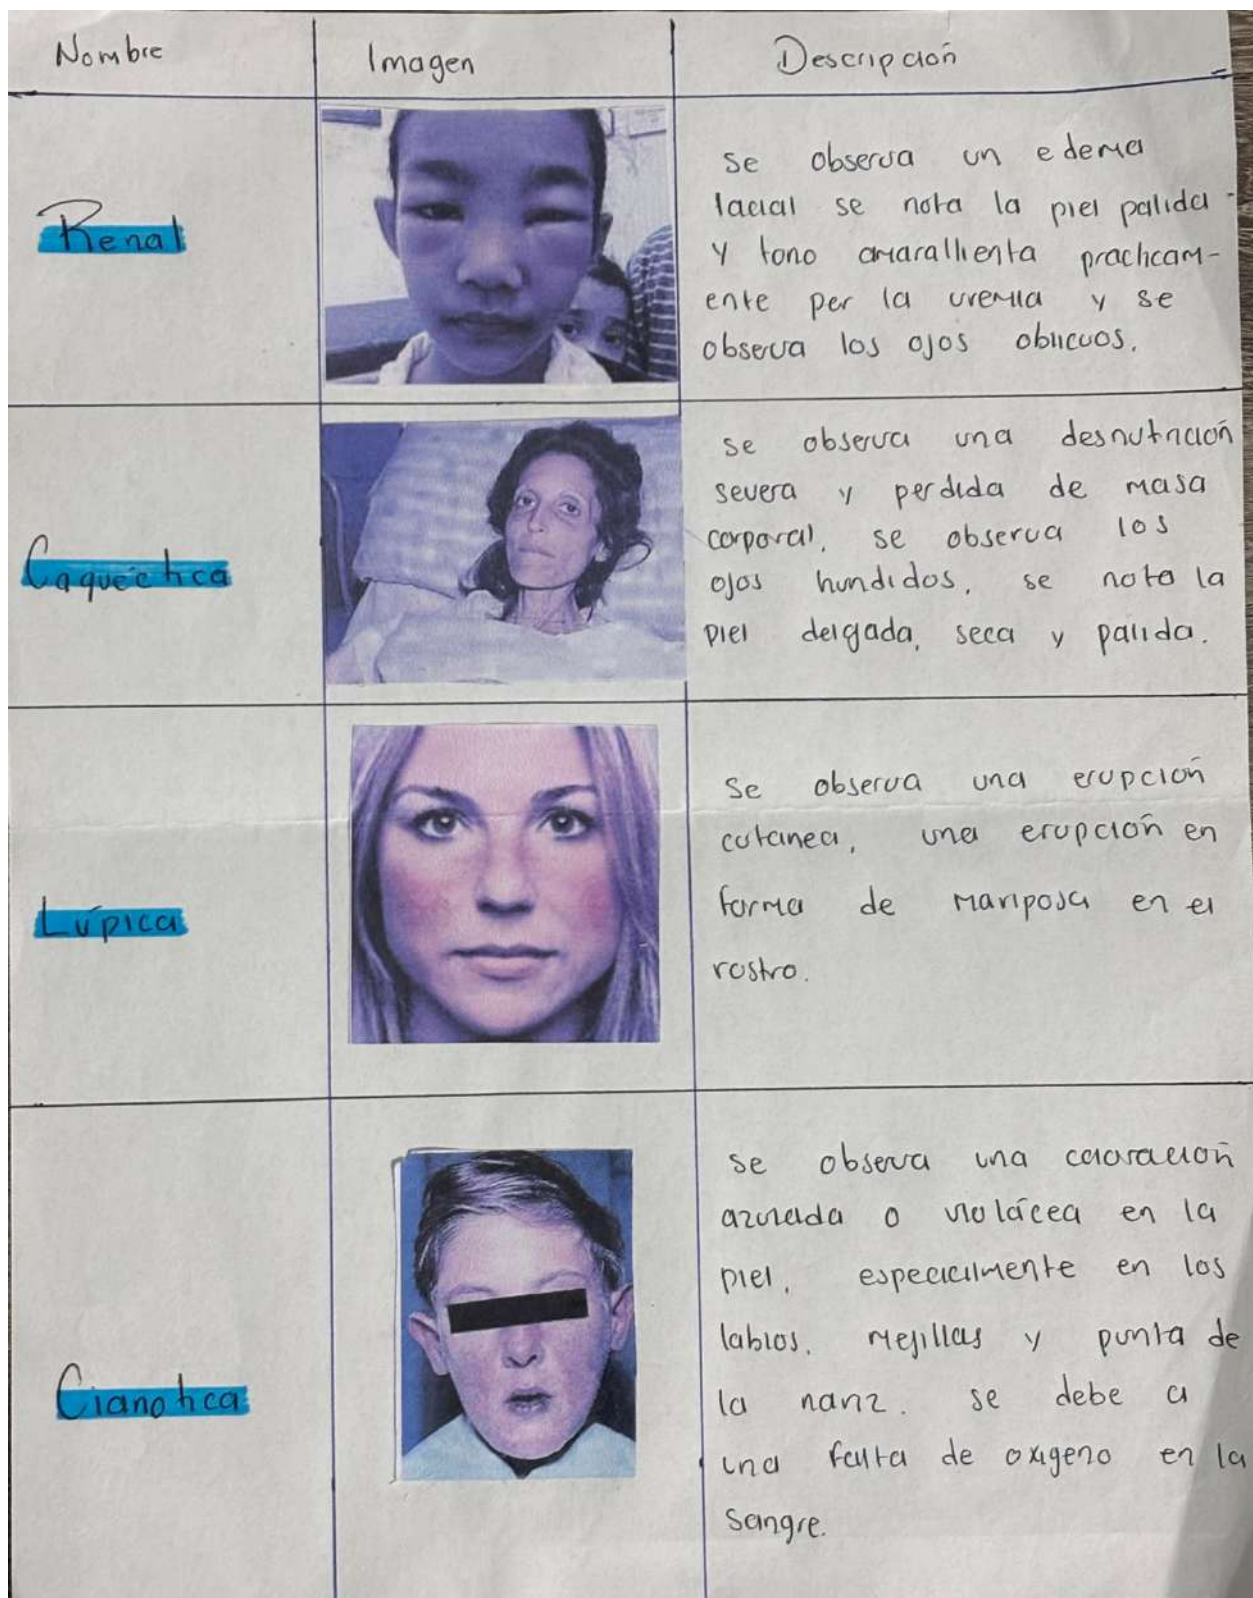 Nombre
Imagen
Descripción
Renal
se observa un edema
facial se nota la piel palida
y tono amarallienta practicam-
ente por la uremia y se
observa los ojos oblicuos.
Caquéctica
se observa una desnutrición
severa y perdida de masa
corporal. se observa los
ojos hundidos, se nota la
piel delgada, seca y palida.
Lúpica
Se observa una erupción
cutanea, una erupción en
forma de mariposa en el
rostro.
Cianotica
se observa una coloración
azulada o violácea en la
piel, especialmente en los
labios, mejillas y punta de
la nariz. se debe a
una falta de oxigeno en la
sangre.